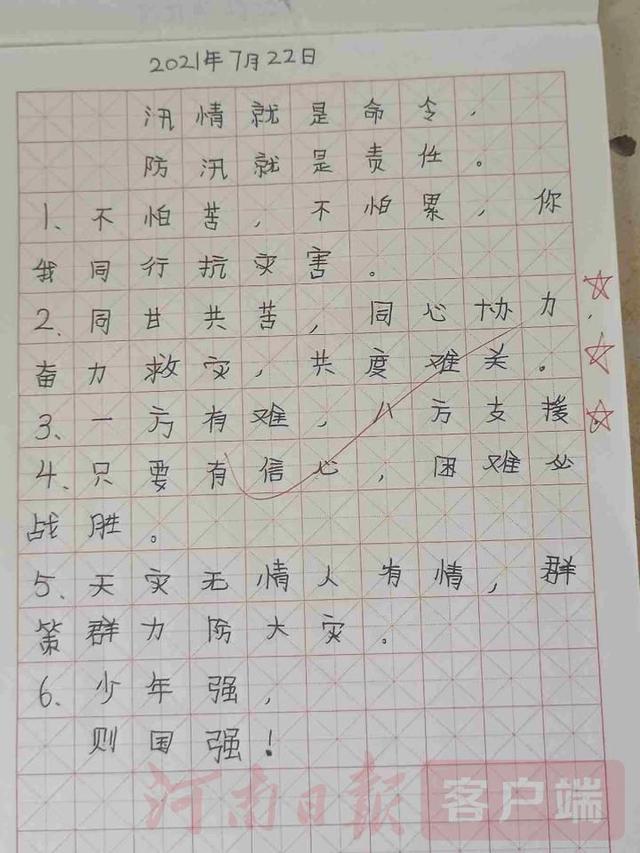 2021年7月22日
汛情就是命令，
防汛就是责任。
1、不怕苦，不怕累，你
我同行抗灾害。
2、同甘共苦，同心协力，
奋力救灾，共度难关。
3、一方有难，八方支援。
4、只要有信心，困难必
战胜。
5、天灾无情人有情，群
策群力防大灾。
6、少年强，
则国强！
河南日报 客户端